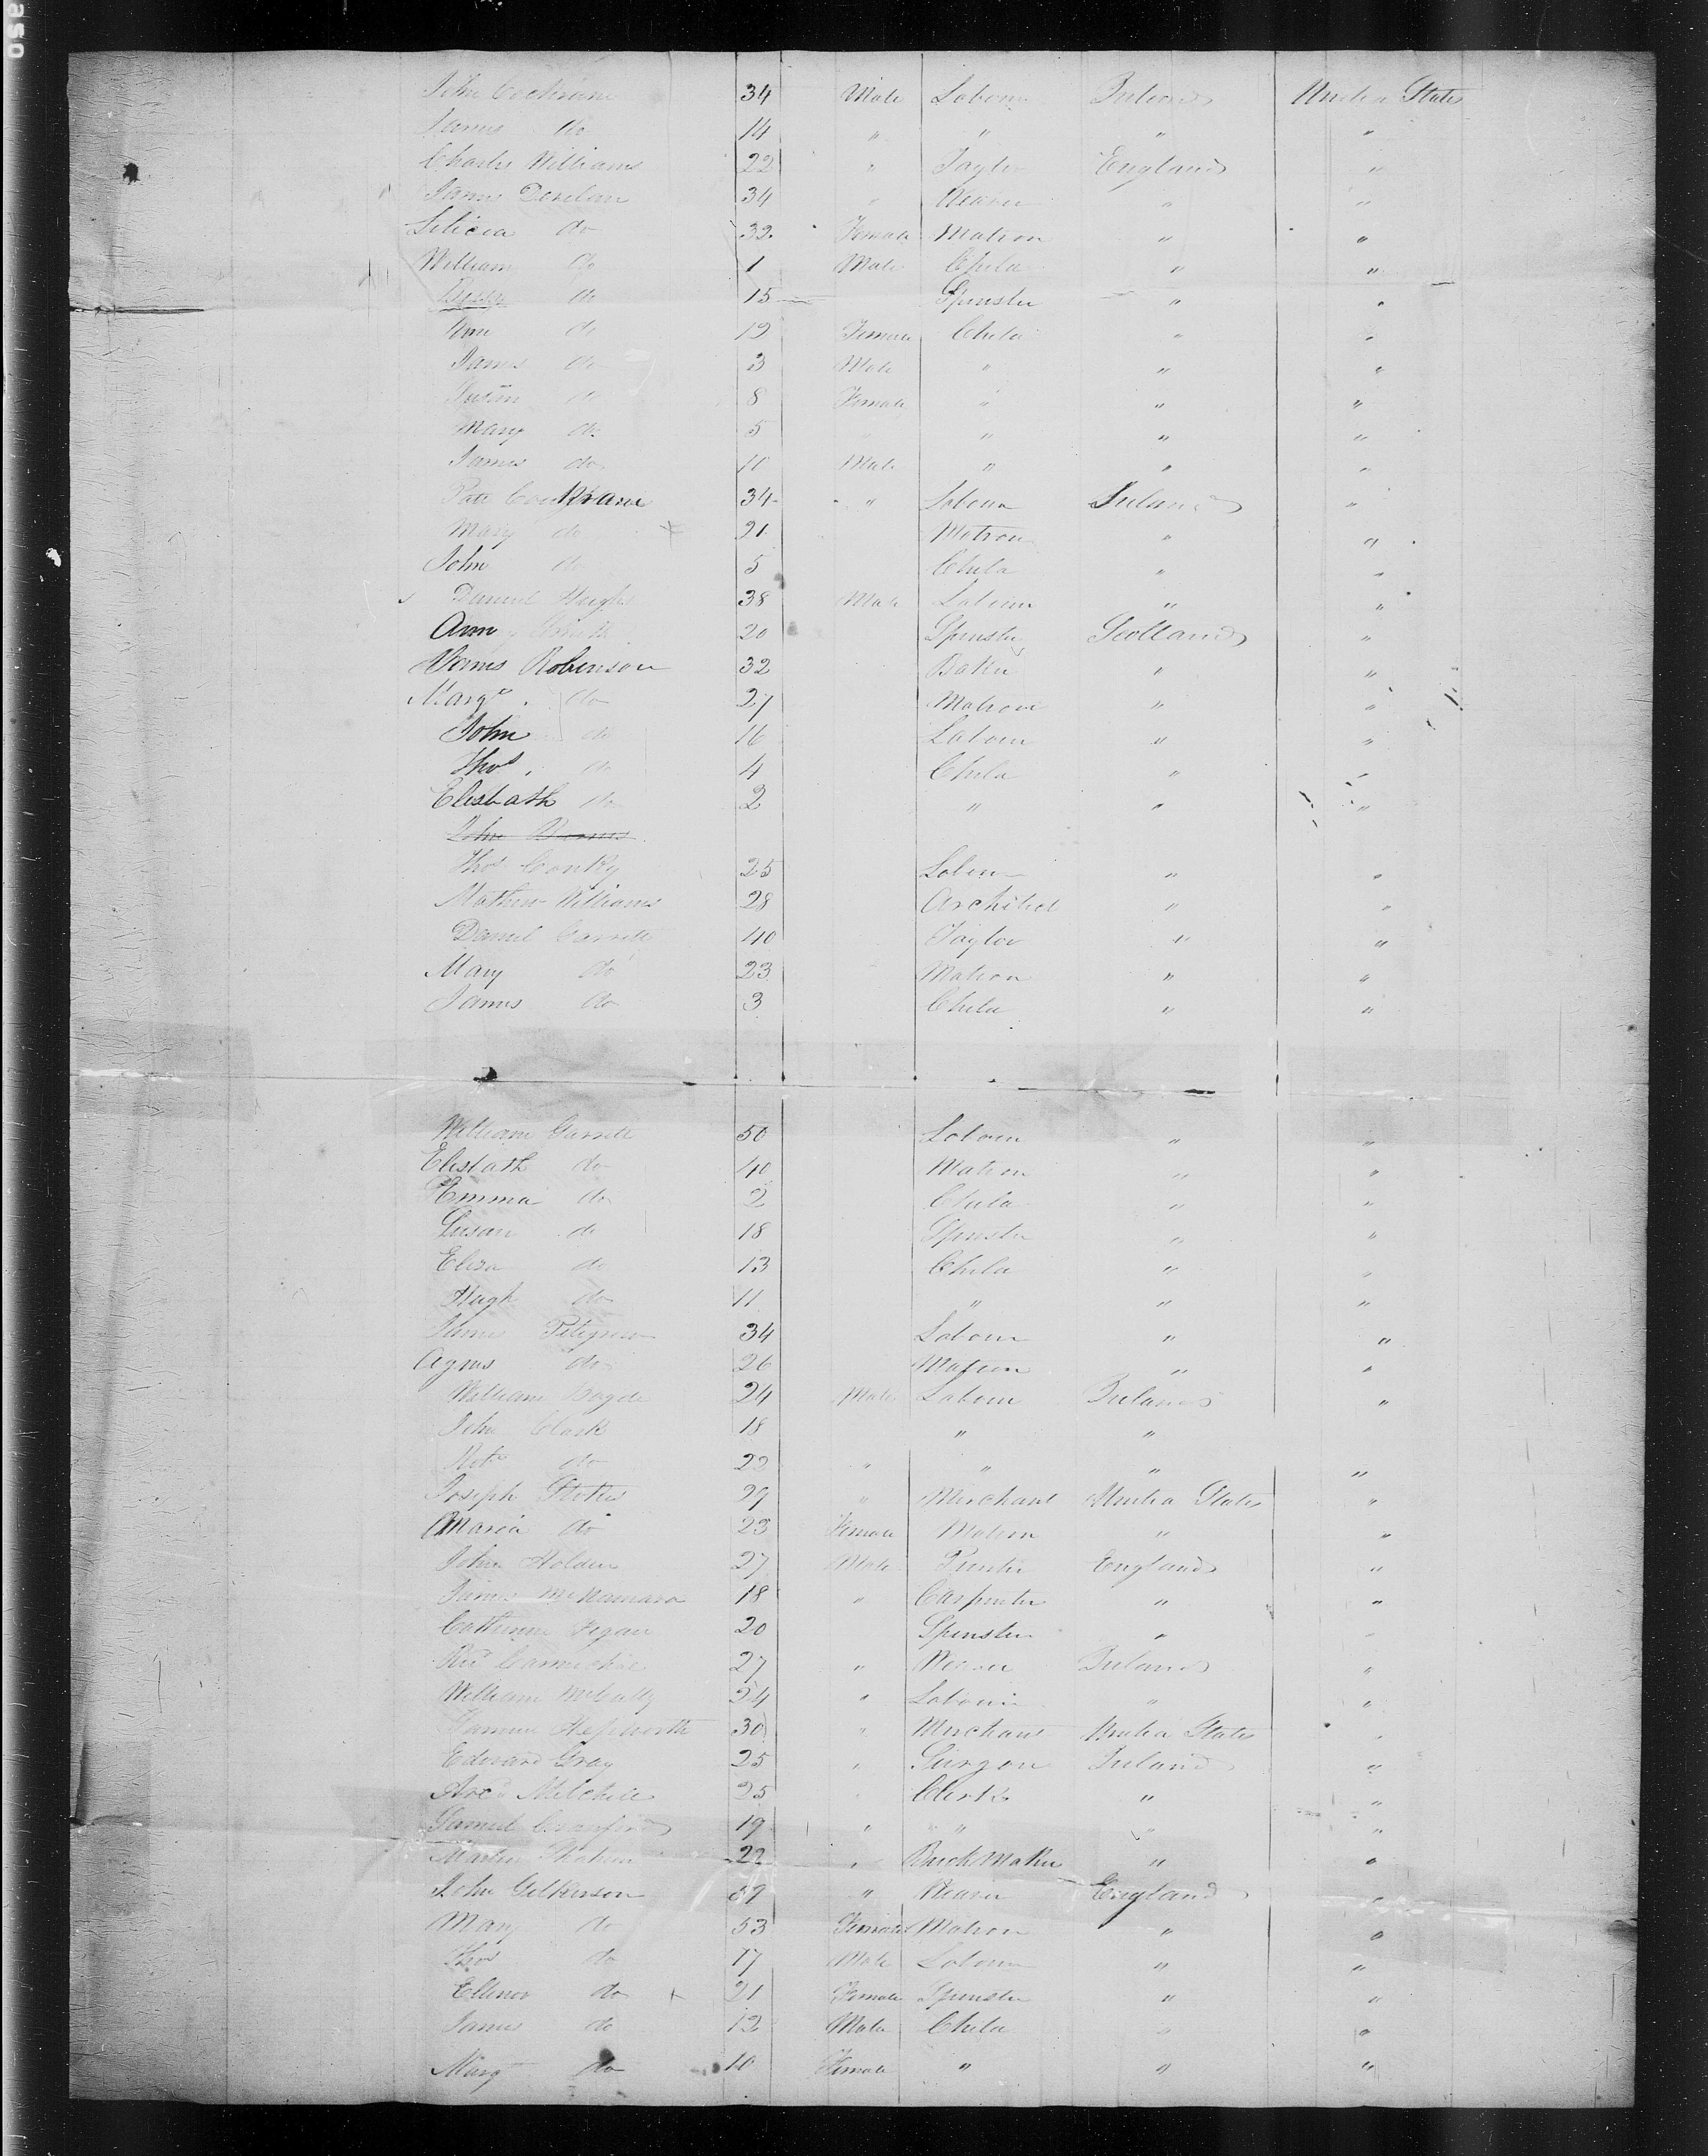 John Cochrane 34 Male Labour Ireland United States
James do 14 " " " "
Charles Williams 22 " Taylor England "
James 34 " Weaver " "
Leticia do 32 Female Matron " "
William do 1 Male Child " "
do 15 Spinster " "
Ann do 12 Female Child " "
James do 3 Male " " "
Susan do 8 Female " " "
Mary do 5 " " " "
James do 10 Male " " "
Patt Cockrane 34 " Labour Ireland "
Mary do 21 Matron " "
John do 5 Child " "
Daniel Hughs 38 Male Labour " "
Ann Smith 20 Spinster Scotland "
James Robinson 32 Baker " "
Margt do 27 Matron " "
John do 16 Labour " "
Thos do 4 Child " "
Elisbath do 2 " " "
John
Thos Conky 25 Labour " "
Mathew Williams 28 Architect " "
Daniel Garrett 40 Taylor " "
Mary do 23 Matron " "
James do 3 Child " "
William Garrett 50 Labour " "
Elisbath do 40 Matron " "
Emma do 2 Child " "
Susan do 18 Spinster " "
Eliza do 13 Child " "
Hugh do 11 " " "
James Petigrew 34 Labour " "
Agnes do 26 Matron " "
William Boyde 24 Male Labour Ireland "
John Clark 18 " "
Robt do 22 " " " "
Joseph Stokes 29 " Merchant United States "
Maria do 23 Female Matron " "
John Holden 27 Male Printer England "
James McNamara 18 " Carpenter " "
Catherine Fegan 20 Spinster " "
Carmichael 27 " Weaver Ireland "
William McCally 24 " Labour " "
Hepworth 30 " Merchant United States "
Edward Gray 25 " Surgon Ireland "
Arcd Mitchell 25 " Clerk " "
Samuel Crawford 19 " " " "
Martin 22 " Brick Maker " "
John Gilkerson 59 " Weaver England "
Mary do 53 Female Matron " "
Thos do 17 Male Labour " "
Ellenor do x 21 Female Spinster " "
James do 12 Male Child " "
Margt do 10 Female " " "